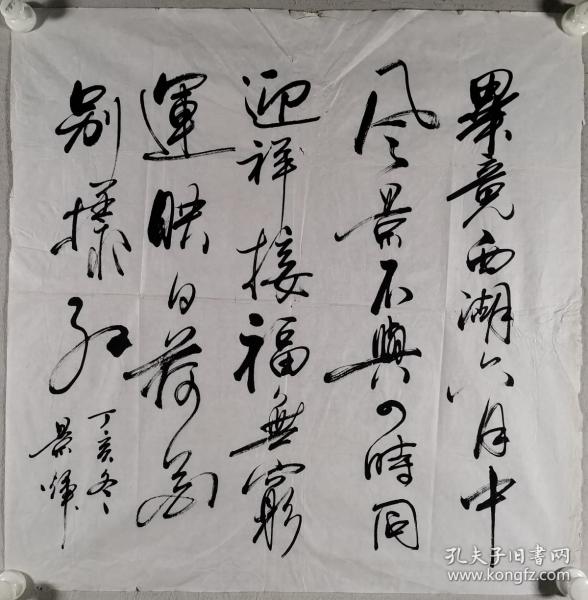 畢竟西湖六月中
風景不與四時同
迎祥接福無窮
運映日荷花
別樣紅
丁亥冬
景輝
孔夫子旧书网
www.kongfz.com